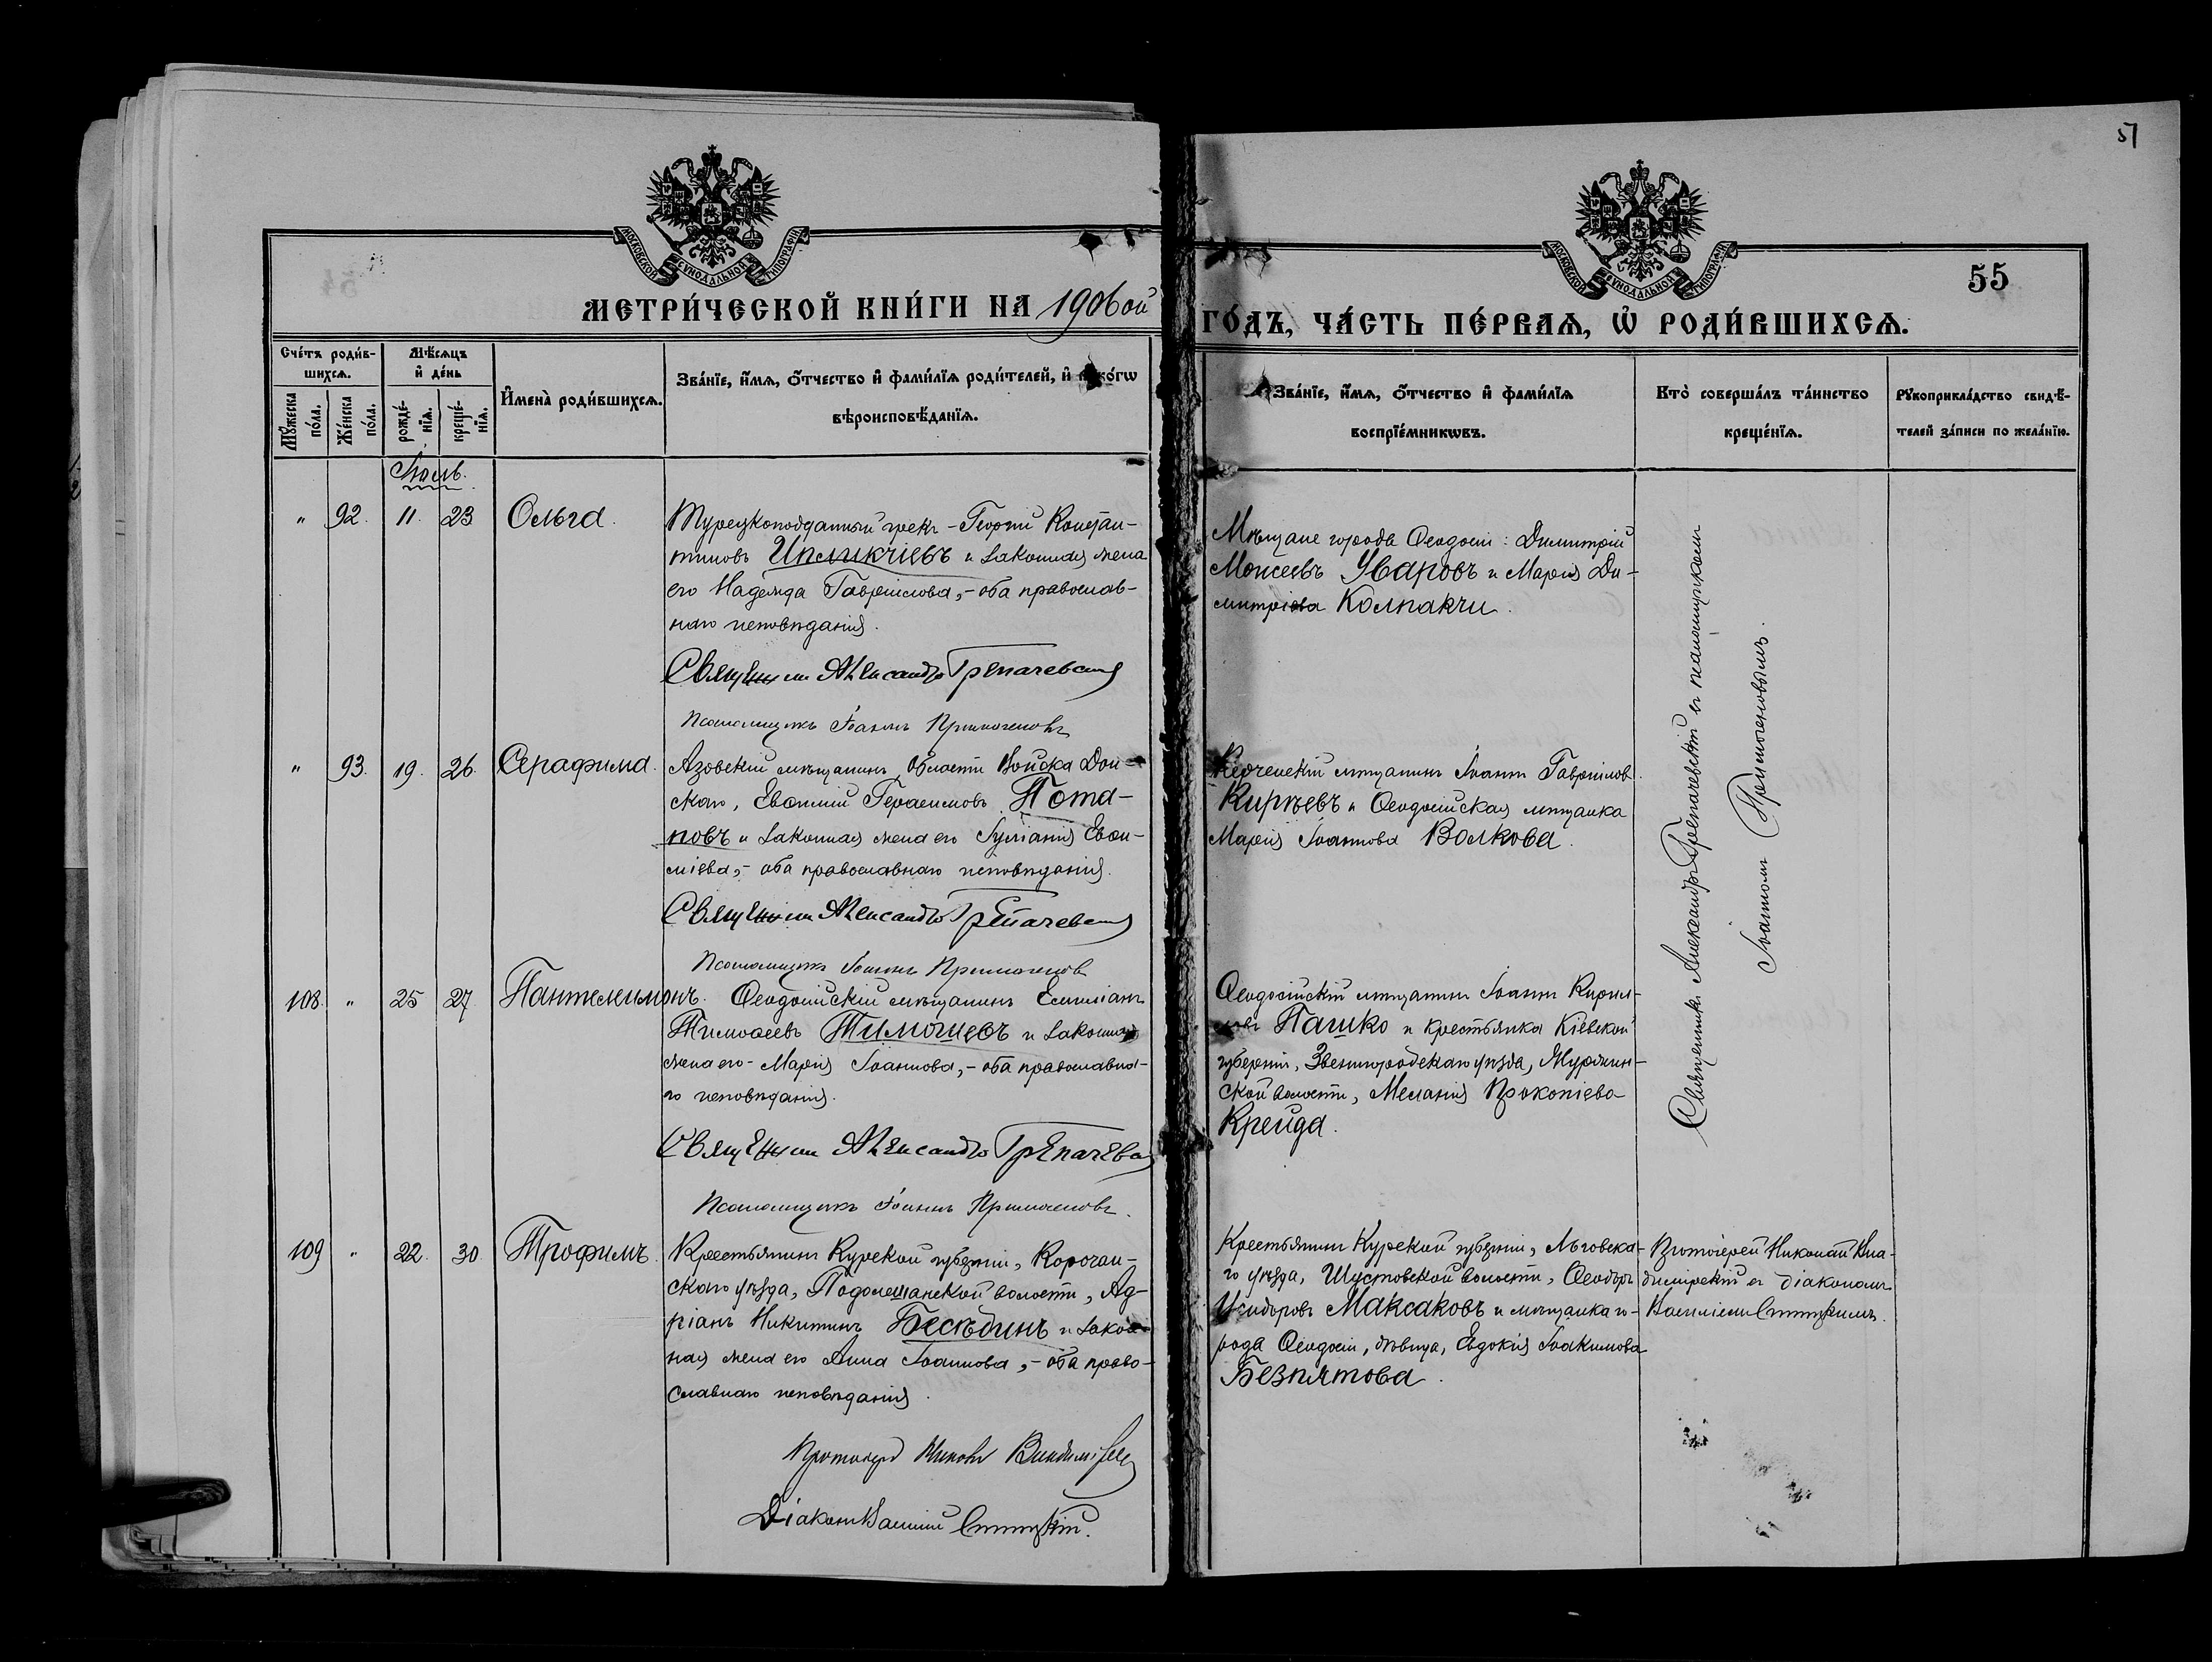 57
МОСКОВСКОЙ СУНОДАЛЬНОЙ ТИПОГРАФІИ
МОСКОВСКОЙ СУНОДАЛЬНОЙ ТИПОГРАФІИ
55
МЕТРИ́ЧЕСКОЙ КНИ́ГИ НА 1906ой
ГО́ДЪ, ЧА́СТЬ ПЕ́РВАѦ, Ѡ҆ РОДИ́ВШИХСѦ.
Сче́тъ роди́в-
шихсѧ.
Мꙋ́жеска по́ла.
Же́нска по́ла.
Мѣ́сѧцъ
и҆ де́нь
рожде́-
нїѧ.
креще́-
нїѧ.
И҆мена̀ роди́вшихсѧ.
Зва́нїе, и҆́мѧ, ѻ҆́тчество и҆ фами́лїѧ роди́телей, и҆ како́гѡ
вѣроисповѣ́данїѧ.
Зва́нїе, и҆́мѧ, ѻ҆́тчество и҆ фами́лїѧ
воспрїе́мникѡвъ.
Кто̀ соверша́лъ та́инство
креще́нїѧ.
Рꙋкоприкла́дство свидѣ́-
телей за́писи по жела́нїю.
Іюль.
" 92. 11. 23 Ольга.
Турецкоподданный грекъ - Георгій Констан-
тиновъ Ипликчіевъ и законная жена
его Надежда Гавріилова, - оба православ-
наго исповѣданія.
Священникъ Александръ Грепачевскій
Псаломщикъ Іоаннъ Примогеновъ
Мѣщане города Ѳеодосіи: Димитрій
Моисеевъ Уваровъ и Марія Ди-
митріева Колпакчи.
Священникъ Александръ Грепачевскій съ псаломщикомъ
Іоанномъ Примогеновымъ.
" 93. 19. 26. Серафима.
Азовскій мѣщанинъ, Области Войска Дон-
скаго, Евѳимій Герасимовъ Пота-
повъ и законная жена его Іуліанія Евѳи-
міева, - оба православнаго исповѣданія.
Священникъ Александръ Грепачевскій
Псаломщикъ Іоаннъ Примогеновъ
Керченскій мѣщанинъ Іоаннъ Гавріиловъ
Кирѣевъ и Ѳеодосійская мѣщанка
Марія Іоаннова Волкова.
108. " 25 27 Пантелеимонъ.
Ѳеодосійскій мѣщанинъ Емиліанъ
Тимоѳеевъ Тимошевъ и законная
жена его - Марія Іоаннова, - оба православна-
го исповѣданія.
Священникъ Александръ Грепачевскій
Псаломщикъ Іоаннъ Примогеновъ.
Ѳеодосійскій мѣщанинъ Іоаннъ Кирил-
ловъ Пашко и крестьянка Кіевской
губерніи, Звенигородскаго уѣзда,
ской волости, Меланія Прокопіева
Крейда.
109 " 22. 30 Трофимъ.
Крестьянинъ Курской губерніи, Корочан-
скаго уѣзда, Подолешанской волости, Ад-
ріанъ Никитинъ Бесѣдинъ и закон-
ная жена его Анна Іоаннова, - оба право-
славнаго исповѣданія.
Протоіерей Николай Владимірскій
Діаконъ Василій
Крестьянинъ Курской губерніи, Льговска-
го уѣзда, Шустовской волости, Ѳеодоръ
Исидоровъ Максаковъ и мѣщанка го-
рода Ѳеодосіи, дѣвица, Евдокія Іоакимова
Безпятова.
Протоіерей Николай Вла-
димірскій съ діакономъ
Василіемъ